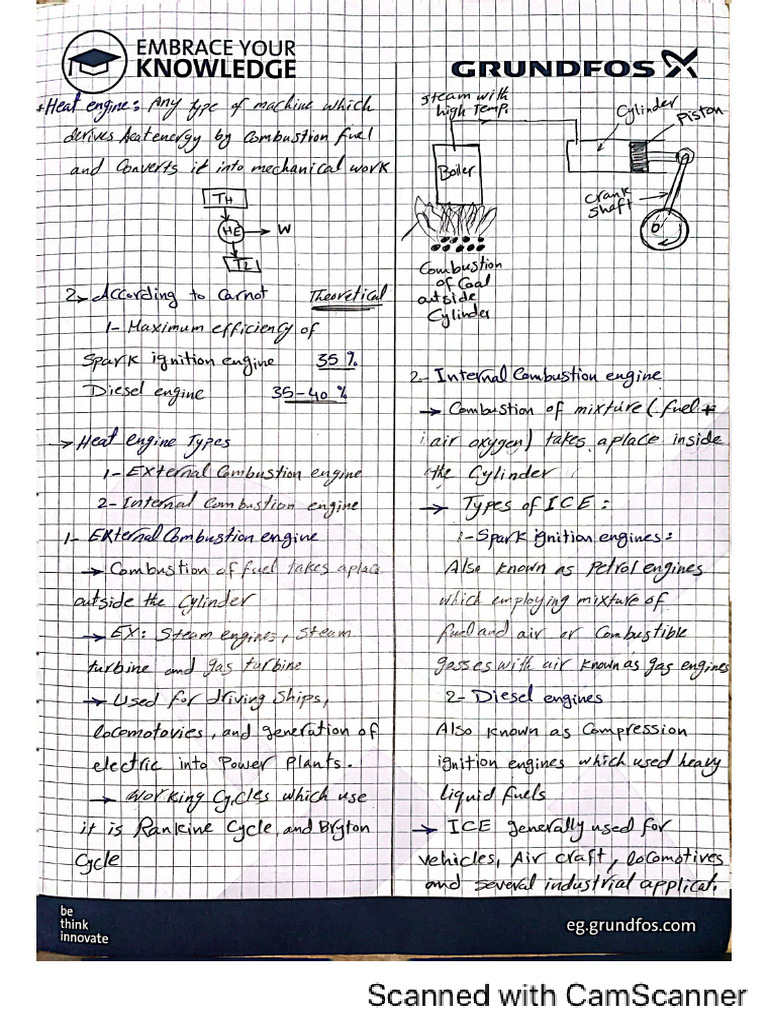 EMBRACE YOUR
KNOWLEDGE
GRUNDFOS
Heat engine: Any type of machine which
derives heat energy by Combustion fuel
and Converts it into mechanical work
TH
HE
W
TL
2- According to Carnot Theoretical
1- Maximum efficiency of
Spark ignition engine 35 %
Diesel engine 35-40 %
→ Heat engine Types
1- External Combustion engine
2- Internal Combustion engine
1- External Combustion engine
→ Combustion of fuel takes aplace
outside the Cylinder
→ EX: Steam engines, steam
turbine and gas turbine
→ Used for driving ships,
locomotovies, and generation of
electric into Power Plants.
→ Working Cycles which use
it is Rankine Cycle, and Bryton
Cycle
steam with
high Temp.
Cylinder
Piston
Boiler
Crank
shaft
Combustion
of Coal
outside
Cylinder
2- Internal Combustion engine
→ Combustion of mixture (fuel +
air oxygen) takes aplace inside
the Cylinder
→ Types of ICE:
1- Spark ignition engines:
Also known as Petrol engines
which employing mixture of
fuel and air or Combustible
gasses with air known as gas engines
2- Diesel engines
Also known as Compression
ignition engines which used heavy
liquid fuels
→ ICE generally used for
vehicles, Air craft, locomotives
and several industrial applicat.
be
think
innovate
eg.grundfos.com
Scanned with CamScanner